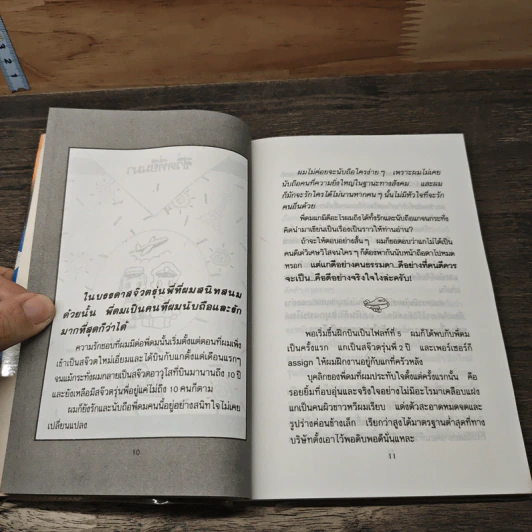 ในบรรดาสจ๊วตรุ่นพี่ที่ผมสนิทสนม
ด้วยนั้น พี่ตมเป็นคนที่ผมนับถือและรัก
มากที่สุดก็ว่าได้
ความรักชอบที่ผมมีต่อพี่ตมนั้นเริ่มตั้งแต่ตอนที่ผมเพิ่ง
เข้าเป็นสจ๊วตใหม่เอี่ยมและได้บินกับแกตั้งแต่เดือนแรกๆ
จนแม้กระทั่งผมกลายเป็นสจ๊วตอาวุโสที่บินมานานถึง 10 ปี
และยังเหลือมีสจ๊วตรุ่นพี่อยู่แค่ไม่ถึง 10 คนก็ตาม
ผมก็ยังรักและนับถือพี่ตมคนนี้อยู่อย่างสนิทใจไม่เคย
เปลี่ยนแปลง
10
ผมไม่ค่อยจะนับถือใครง่ายๆ เพราะผมไม่เคย
นับถือคนที่ความยิ่งใหญ่ในฐานะทางสังคม และผม
ก็มักจะรักใครได้ไม่นานหากคนๆ นั้นไม่มีหัวใจที่จะรัก
คนอื่นด้วย
พี่ตมแกมีดีอะไรผมถึงได้ทั้งรักและนับถือแกจนกระทั่ง
คิดนำมาเขียนเป็นเรื่องเป็นราวให้ท่านอ่าน?
ถ้าจะให้ตอบอย่างสั้นๆ ผมก็ขอตอบว่าแกไม่ได้เป็น
คนดีเด่วิเศษวิโสจนใครๆ ก็ต้องพากันนับหน้าถือตาไปหมด
หรอก แต่แกดีอย่างคนธรรมดา..ดีอย่างที่คนดีควร
จะเป็น..คือดีอย่างจริงใจไงล่ะครับ!
พอเริ่มขึ้นฝึกบินเป็นไฟลท์ที่ 5 ผมก็ได้พบกับพี่ตม
เป็นครั้งแรก แกเป็นสจ๊วตรุ่นพี่ 2 ปี และเพอร์เซอร์ก็
assign ให้ผมฝึกงานอยู่กับแกที่ครัวหลัง
บุคลิกของพี่ตมที่ผมประทับใจตั้งแต่ครั้งแรกนั้น คือ
รอยยิ้มที่อบอุ่นและจริงใจอย่างไม่มีอะไรมาเคลือบแฝง
แกเป็นคนผิวขาวหวีผมเรียบ แต่งตัวสะอาดหมดจดและ
รูปร่างค่อนข้างเล็ก เรียกว่าสูงได้มาตรฐานต่ำสุดที่ทาง
บริษัทตั้งเอาไว้พอดิบพอดีนั่นแหละ
11